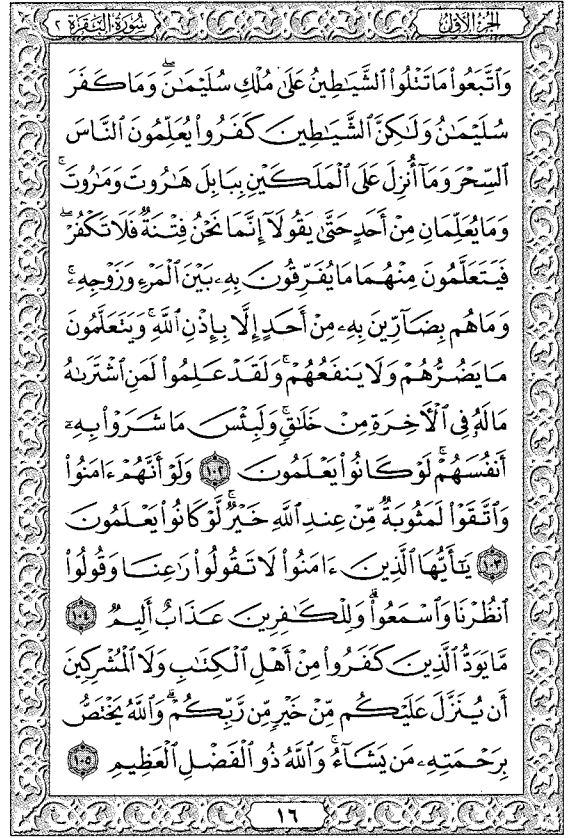 الجزء الأول
سورة البقرة ٢
وَٱتَّبَعُوا۟ مَا تَتْلُوا۟ ٱلشَّيَٰطِينُ عَلَىٰ مُلْكِ سُلَيْمَٰنَ ۖ وَمَا كَفَرَ
سُلَيْمَٰنُ وَلَٰكِنَّ ٱلشَّيَٰطِينَ كَفَرُوا۟ يُعَلِّمُونَ ٱلنَّاسَ
ٱلسِّحْرَ وَمَآ أُنزِلَ عَلَى ٱلْمَلَكَيْنِ بِبَابِلَ هَٰرُوتَ وَمَٰرُوتَ ۚ
وَمَا يُعَلِّمَانِ مِنْ أَحَدٍ حَتَّىٰ يَقُولَآ إِنَّمَا نَحْنُ فِتْنَةٌ فَلَا تَكْفُرْ ۖ
فَيَتَعَلَّمُونَ مِنْهُمَا مَا يُفَرِّقُونَ بِهِۦ بَيْنَ ٱلْمَرْءِ وَزَوْجِهِۦ ۚ
وَمَا هُم بِضَآرِّينَ بِهِۦ مِنْ أَحَدٍ إِلَّا بِإِذْنِ ٱللَّهِ ۚ وَيَتَعَلَّمُونَ
مَا يَضُرُّهُمْ وَلَا يَنفَعُهُمْ ۚ وَلَقَدْ عَلِمُوا۟ لَمَنِ ٱشْتَرَىٰهُ
مَا لَهُۥ فِى ٱلْءَاخِرَةِ مِنْ خَلَٰقٍ ۚ وَلَبِئْسَ مَا شَرَوْا۟ بِهِۦٓ
أَنفُسَهُمْ ۚ لَوْ كَانُوا۟ يَعْلَمُونَ ١٠٢ وَلَوْ أَنَّهُمْ ءَامَنُوا۟
وَٱتَّقَوْا۟ لَمَثُوبَةٌ مِّنْ عِندِ ٱللَّهِ خَيْرٌ ۖ لَّوْ كَانُوا۟ يَعْلَمُونَ
١٠٣ يَٰٓأَيُّهَا ٱلَّذِينَ ءَامَنُوا۟ لَا تَقُولُوا۟ رَٰعِنَا وَقُولُوا۟
ٱنظُرْنَا وَٱسْمَعُوا۟ ۗ وَلِلْكَٰفِرِينَ عَذَابٌ أَلِيمٌ ١٠٤
مَّا يَوَدُّ ٱلَّذِينَ كَفَرُوا۟ مِنْ أَهْلِ ٱلْكِتَٰبِ وَلَا ٱلْمُشْرِكِينَ
أَن يُنَزَّلَ عَلَيْكُم مِّنْ خَيْرٍ مِّن رَّبِّكُمْ ۗ وَٱللَّهُ يَخْتَصُّ
بِرَحْمَتِهِۦ مَن يَشَآءُ ۚ وَٱللَّهُ ذُو ٱلْفَضْلِ ٱلْعَظِيمِ ١٠٥
١٦